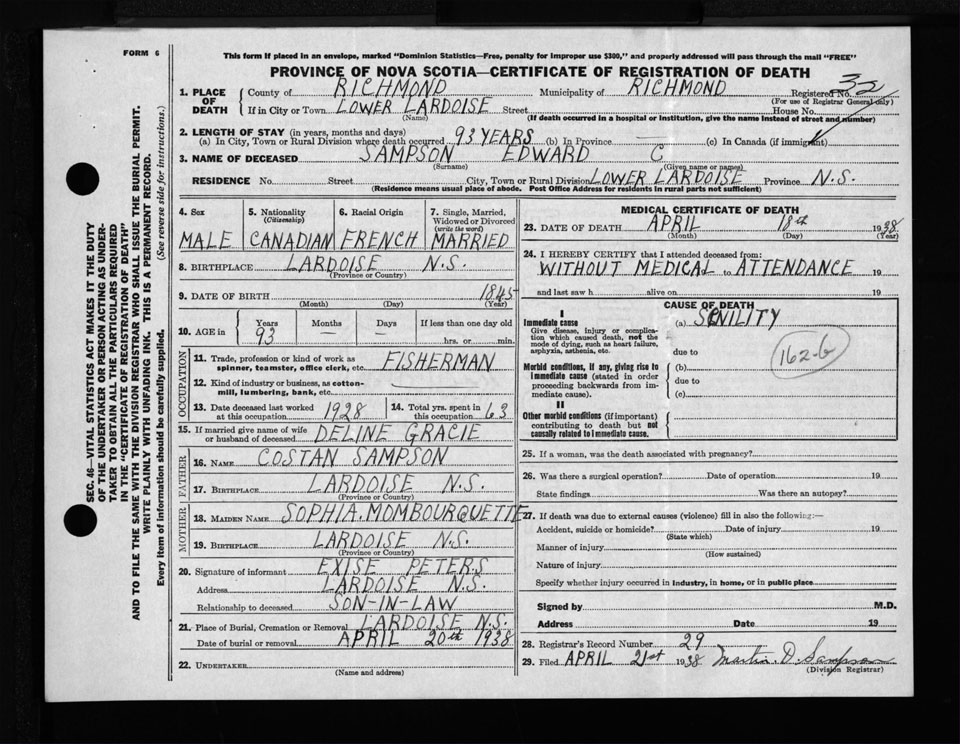 FORM 6
This form if placed in an envelope, marked "Dominion Statistics—Free, penalty for improper use $300," and properly addressed will pass through the mail "FREE"
PROVINCE OF NOVA SCOTIA—CERTIFICATE OF REGISTRATION OF DEATH
1. PLACE OF DEATH County of RICHMOND Municipality of RICHMOND Registered No. 32
(For use of Registrar General only)
If in City or Town LOWER LARDOISE Street House No.
(Name) (If death occurred in a hospital or institution, give the name instead of street and number)
2. LENGTH OF STAY (in years, months and days)
(a) In City, Town or Rural Division where death occurred 93 YEARS (b) In Province — (c) In Canada (if immigrant)
3. NAME OF DECEASED SAMPSON EDWARD C
(Surname) (Given name or names)
RESIDENCE No. Street City, Town or Rural Division LOWER LARDOISE Province N.S.
(Residence means usual place of abode. Post Office Address for residents in rural parts not sufficient)
4. Sex MALE
5. Nationality (Citizenship) CANADIAN
6. Racial Origin FRENCH
7. Single, Married, Widowed or Divorced (write the word) MARRIED
8. BIRTHPLACE LARDOISE N.S.
(Province or Country)
9. DATE OF BIRTH 1845
(Month) (Day) (Year)
10. AGE in Years 93 Months — Days — If less than one day old hrs. or min.
OCCUPATION
11. Trade, profession or kind of work as spinner, teamster, office clerk, etc. FISHERMAN
12. Kind of industry or business, as cotton-mill, lumbering, bank, etc.
13. Date deceased last worked at this occupation 1928
14. Total yrs. spent in this occupation 63
15. If married give name of wife or husband of deceased DELINE GRACIE
FATHER
16. NAME COSTAN SAMPSON
17. BIRTHPLACE LARDOISE N.S.
(Province or Country)
MOTHER
18. MAIDEN NAME SOPHIA. MOMBOURQUETTE
19. BIRTHPLACE LARDOISE N.S.
(Province or Country)
20. Signature of informant EXISE PETERS
Address LARDOISE N.S.
Relationship to deceased SON-IN-LAW
21. Place of Burial, Cremation or Removal LARDOISE N.S.
Date of burial or removal APRIL 20th 1938
22. UNDERTAKER
(Name and address)
MEDICAL CERTIFICATE OF DEATH
23. DATE OF DEATH APRIL 18th 1938
(Month) (Day) (Year)
24. I HEREBY CERTIFY that I attended deceased from:
WITHOUT MEDICAL to ATTENDANCE 19
and last saw h alive on 19
CAUSE OF DEATH
I
Immediate cause (a) SENILITY
Give disease, injury or complication which caused death, not the mode of dying, such as heart failure, asphyxia, asthenia, etc.
due to
162-b
Morbid conditions, if any, giving rise to immediate cause (stated in order proceeding backwards from immediate cause).
(b)
due to
(c)
II
Other morbid conditions (if important) contributing to death but not causally related to immediate cause.
25. If a woman, was the death associated with pregnancy?
26. Was there a surgical operation? Date of operation 19
State findings Was there an autopsy?
27. If death was due to external causes (violence) fill in also the following:—
Accident, suicide or homicide? Date of injury 19
(State which)
Manner of injury
(How sustained)
Nature of injury
Specify whether injury occurred in industry, in home, or in public place
Signed by M.D.
Address Date 19
28. Registrar's Record Number 29
29. Filed APRIL 21st 1938 Martin. D. Sampson
(Division Registrar)
SEC. 46—VITAL STATISTICS ACT MAKES IT THE DUTY
OF THE UNDERTAKER OR PERSON ACTING AS UNDER-
TAKER TO OBTAIN ALL THE PARTICULARS REQUIRED
IN THE "CERTIFICATE OF REGISTRATION OF DEATH"
AND TO FILE THE SAME WITH THE DIVISION REGISTRAR WHO SHALL ISSUE THE BURIAL PERMIT.
WRITE PLAINLY WITH UNFADING INK. THIS IS A PERMANENT RECORD.
Every item of information should be carefully supplied. (See reverse side for instructions.)